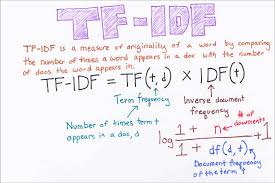 TF-IDF
TF-IDF is a measure of originality of a word by comparing
the number of times a word appears in a doc with the number
of docs the word appears in.
TF-IDF = TF(t, d) × IDF(t)
Term frequency
Inverse document
frequency
Number of times term t
appears in a doc, d
# of documents
log 1 + n / 1 + df(d, t) + 1
Document frequency
of the term t